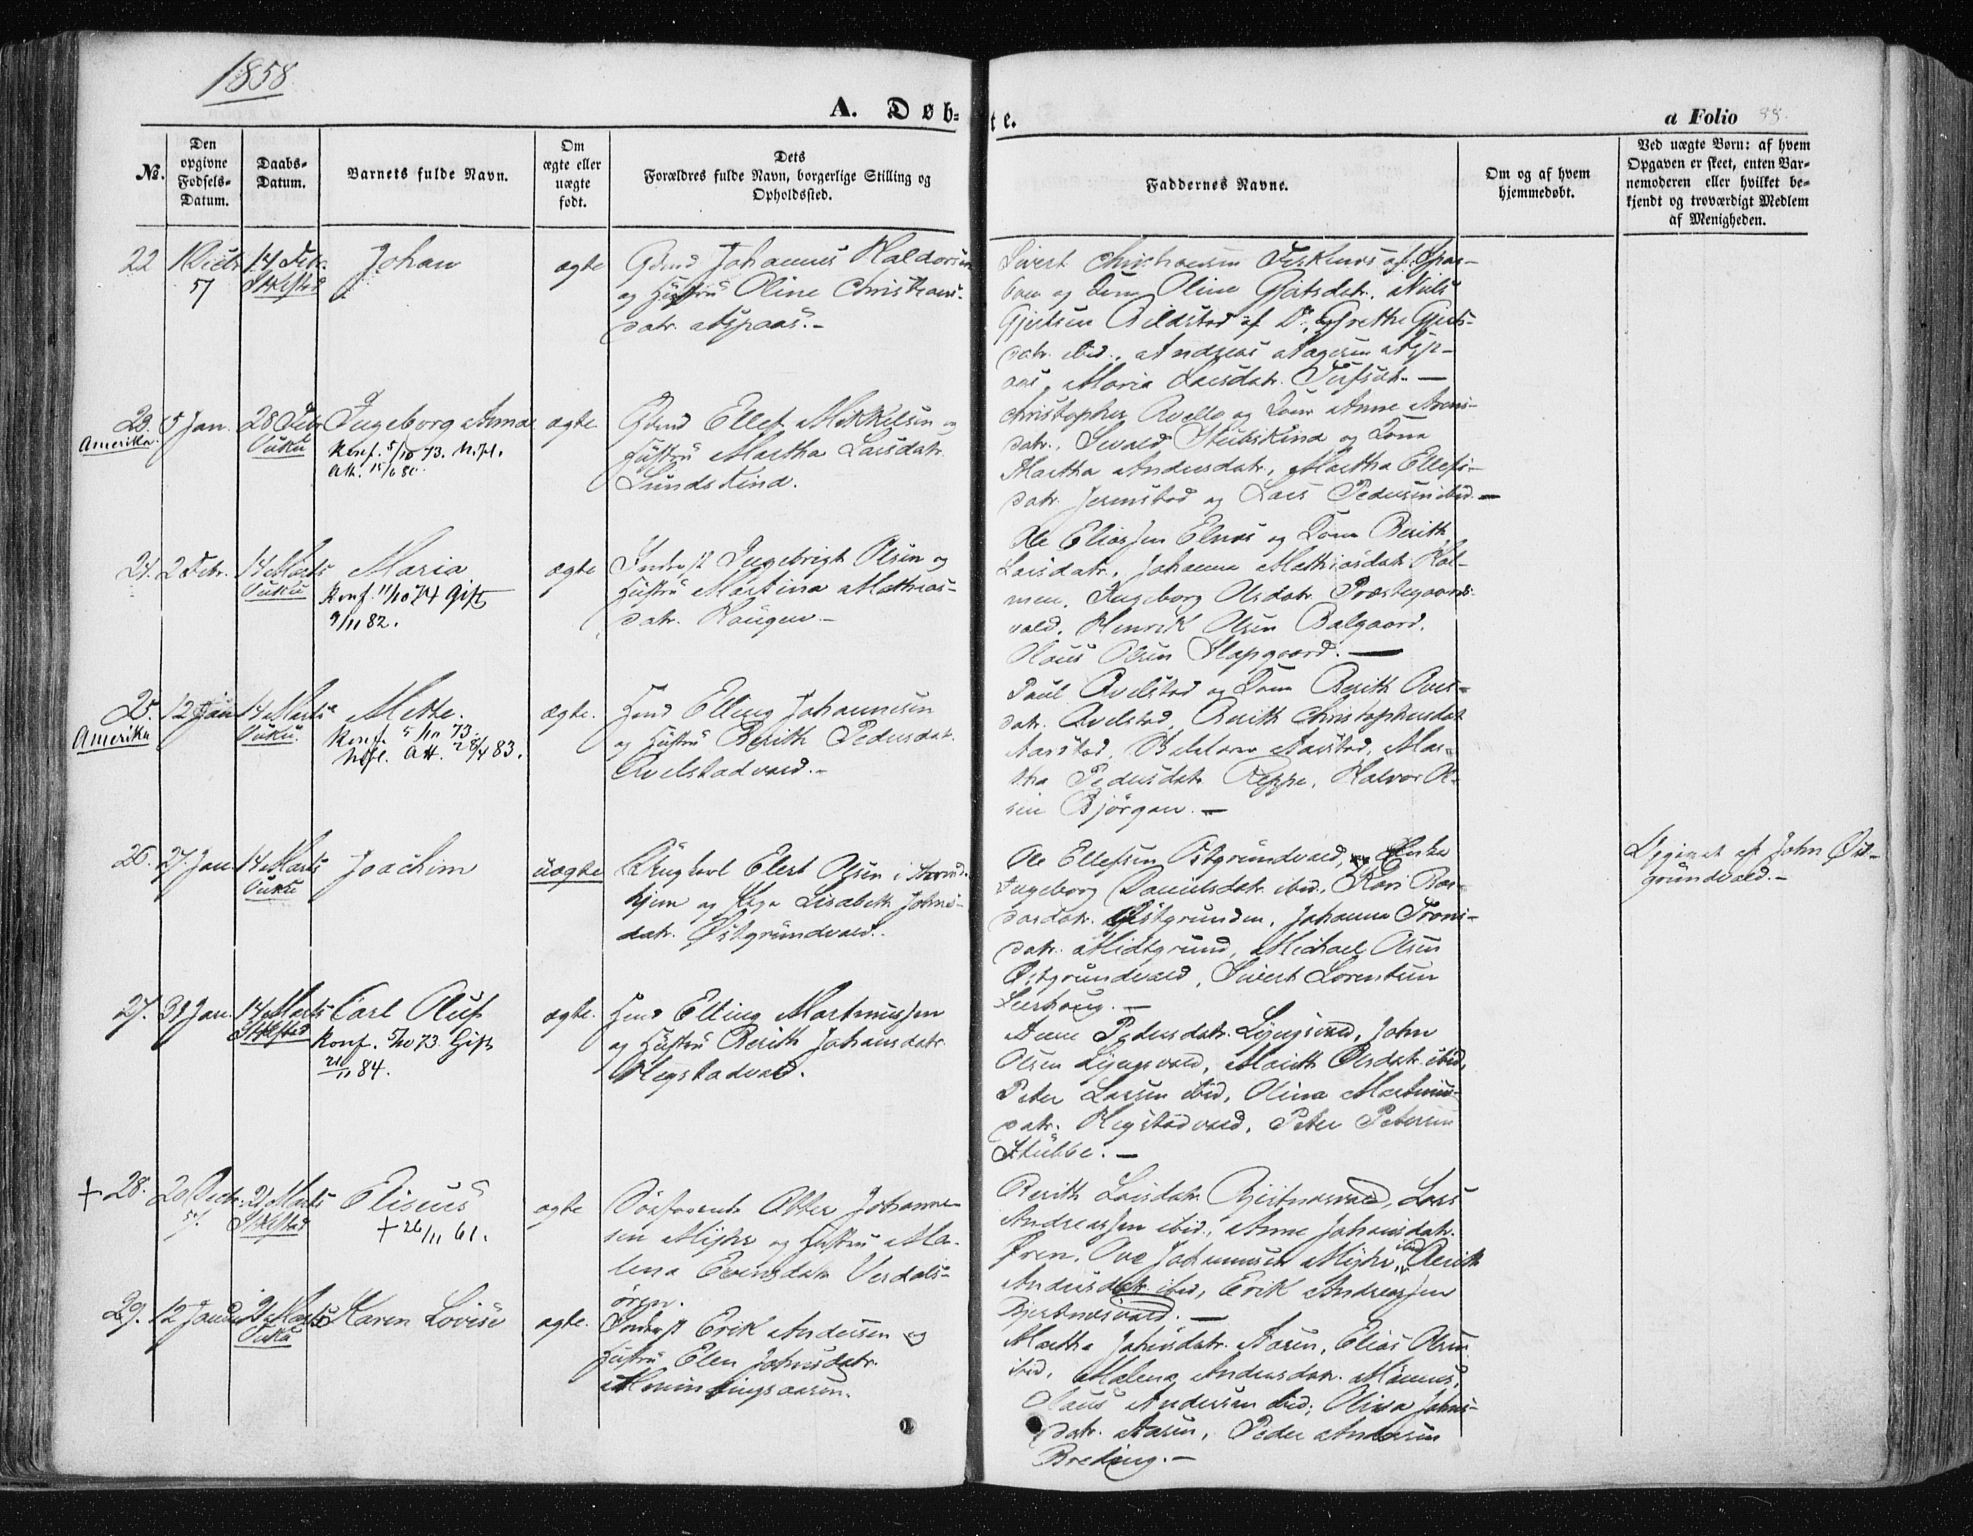 1858
A. Døb-
te.
a Folio 88.
№.
Den
opgivne
Fødsels-
Datum.
Daabs-
Datum.
Barnets fulde Navn.
Om
ægte eller
uægte
født.
Dets
Forældres fulde Navn, borgerlige Stilling og
Opholdssted.
Faddernes Navne.
Om og af hvem
hjemmedøbt.
Ved uægte Børn: af hvem
Opgaven er skeet, enten Bar-
nemoderen eller hvilket be-
kjendt og troværdigt Medlem
af Menigheden.
22
57
14 Febr.
Johan
ægte
Gdmd Johannes Haldorsen
og Hustru Oline Christians-
datr. Aspaas.-
Sivert
og Kone Oline
Gjertsen af Do, Grethe
datr. ibid., Andreas Aagesen Asp-
aas, Maria Larsdatr. —
23.
Amerika.
5 Jan.
28 Febr
Vuku
Ingeborg Anna
Konf. 5/10 73. N.pl.
Att. 15/6 80.
ægte
Gdmd Ellef Mikkelsen og
Hustru Martha Larsdatr.
Sundskind.
Christopher og Kone Anne Arens-
datr. Sivald Stubskind og Kone
Martha Andersdatr., Martha Ellefs-
datr. Jermstad og Lars Pedersen ibid. —
24.
2 Febr.
14 Marts
Vuku
Maria
Konf. 11/10 74 Gift
9/11 82.
ægte
Inderst Ingebrigt Olsen og
Hustru Martina Mathias-
datr. Haugen —
Ole Eliassen Elnæs og Kone Berith
Larsdatr., Johanna Mathiasdatr. Hol-
men, Ingeborg Olsdatr. Præstegaards-
vald, Henrik Olsen Balgaard.
Olaus Olsen Slapgaard. —
25.
Amerika
12 Jan
14 Marts
Vuku.
Mette.
Konf. 5/10 73.
N.pl. Att. 28/4 83.
ægte.
Hmd Elling Johannesen
og Hustru Berith Pedersdatr.
Avelstadvald.-
Paul Avelstad og Kone Berith
datr. Avelstad, Berith Christophersdat
Aarstad, Aarstad, Mar-
tha Pedersdatr. Reppe, Halvor Ol-
sen Bjørgan. —
26.
27. Jan
14 Marts
Vuku
Joachim
uægte
Ungkarl Elert Olsen i Thrond-
hjem og Pige Lisabeth Johns-
datr. Østgrundvald..
Ole Ellefsen Østgrundvald, Enke
Ingeborg Danielsdatr. ibid., Kari Baar-
dsdatr. Østgrunden, Johanna Trons-
datr. Midtgrund, Michael Olsen
Østgrundvald, Sivert Lorentsen
Leerhaug. —
Opgivet af John Øst-
grundvald —
27.
31 Jan.
14 Marts
Stiklestad
Carl Oluf
Konf. 5/10 73. Gift
21/11 84.
ægte.
Hmd Elling Martinussen
og Hustru Berith Johansdatr.
Hegstadvald.
Anne Pedersdatr. Lyngsvald, John
Olsen Lyngsvald, Marith Olsdatr. ibid,
Peter Larsen ibid, Olina Martinus-
datr. Hegstadvald, Peter Petersen
Stubbe. —
+ 28.
20 Decbr.
57.
21 Marts
Stiklestad
Eliseus
+ 26/11 61.
ægte
Otter Johanne-
sen Myhr og Hustru Ma-
lena Evensdatr. Verdals-
øren.
Berith Larsdatr. Bjertnæsvald, Lars
Andreassen ibid., Anne Johansdatr.
Øren, Ove Johannesen Myhr, ibid Berith
Andersdatr. ibid, Erik Andreassen
Bjertnæsvald. —
29.
12 Janu
21 Marts
Vuku
Karen Lovise
ægte.
Inderst Erik Andersen og
Hustru Elen Johnsdatr.
aasen.
Martha Johnsdatr. Aasen, Elias Olsen
ibid, Malena Andersdatr.
Olaus Andersen ibid; Oliva Johns-
datr. Aasen, Peder Andersen
Breding. —